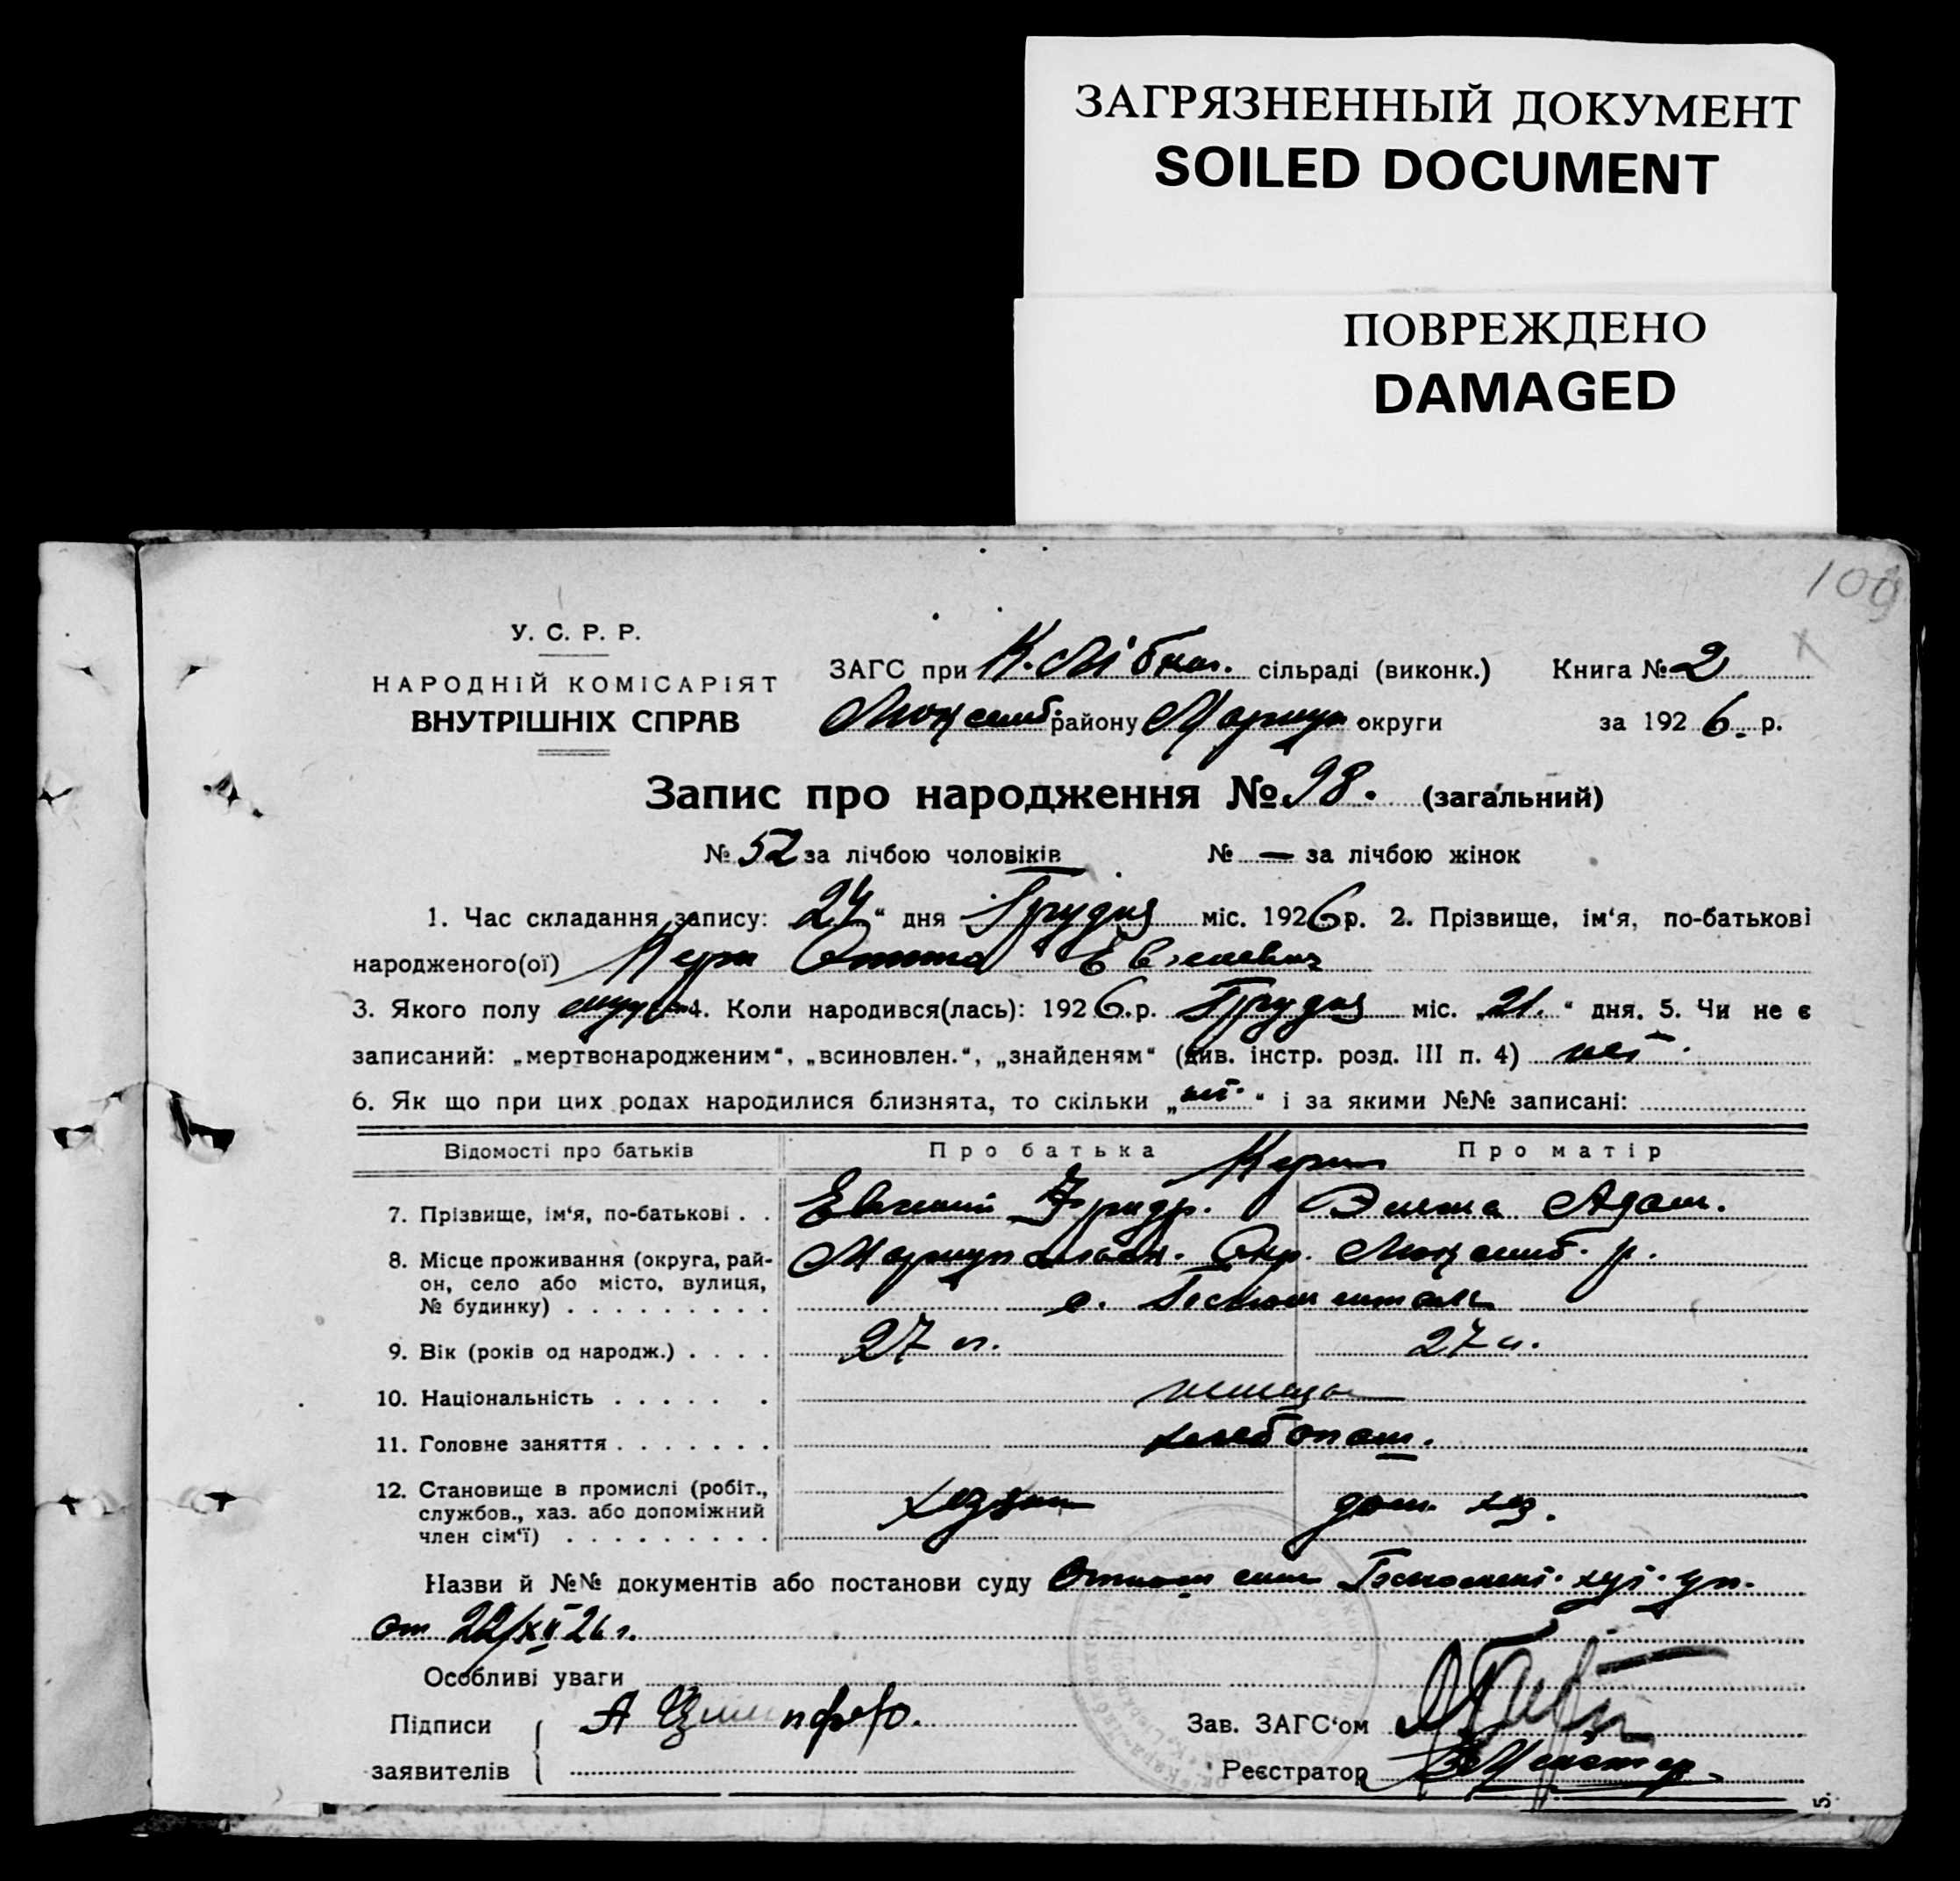 ЗАГРЯЗНЕННЫЙ ДОКУМЕНТ
SOILED DOCUMENT
ПОВРЕЖДЕНО
DAMAGED
109
У. С. Р. Р.
НАРОДНІЙ КОМІСАРІЯТ
ВНУТРІШНІХ СПРАВ
ЗАГС при К. Лібкн. сільраді (виконк.) Книга № 2
Люксемб. району Маріуп. округи за 1926. р.
Запис про народження № 98. (загальний)
№ 52 за лічбою чоловіків № — за лічбою жінок
1. Час складання запису: „24“ дня Грудня міс. 1926 р. 2. Прізвище, ім‘я, по-батькові
народженого(ої) Керн Отто
3. Якого полу муж. 4. Коли народився(лась): 1926. р. Грудня міс. „21.“ дня. 5. Чи не є
записаний: „мертвонародженим“, „всиновлен.“, „знайденям“ (див. інстр. розд. III п. 4) ні.
6. Як що при цих родах народилися близнята, то скільки „ні.“ і за якими №№ записані:
Відомості про батьків Про батька Про матір
Керн
7. Прізвище, ім‘я, по-батькові . . Евгений Фридр. Эмма Адам.
8. Місце проживання (округа, рай-
он, село або місто, вулиця,
№ будинку) . . . . . . . . . Окр. Люксемб. р.
9. Вік (років од народж.) . . . . 27 л. 27 л.
10. Національність . . . . . . немцы
11. Головне заняття . . . . . . . хлебопаш.
12. Становище в промислі (робіт.,
службов., хаз. або допоміжний
член сім‘ї) . . . . . . . . . хозяин дом. хоз.
Назви й №№ документів або постанови суду
от 22/XII 26 г.
Особливі уваги
Підписи
заявителів
А
Зав. ЗАГС‘ом
Реєстратор
5.